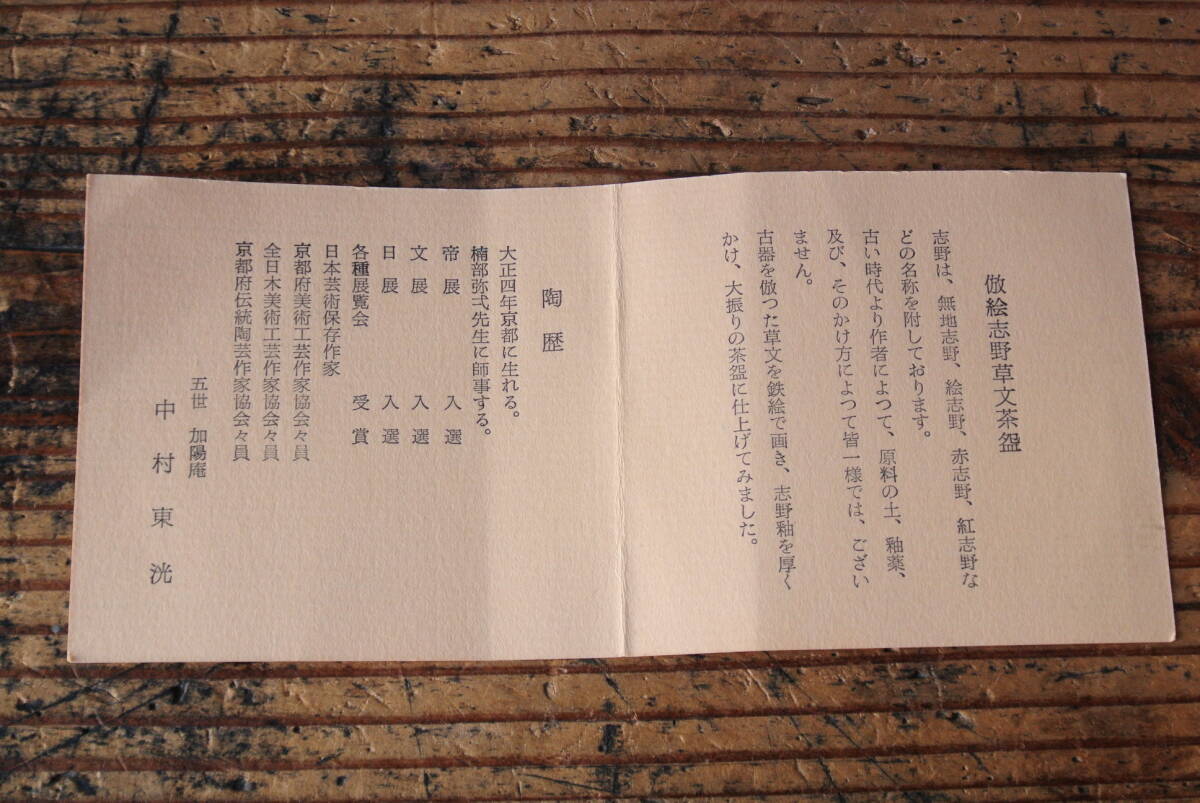 倣絵志野草文茶盌
志野は、無地志野、絵志野、赤志野、紅志野な
どの名称を附しております。
古い時代より作者によつて、原料の土、釉薬、
及び、そのかけ方によつて皆一様では、ござい
ません。
古器を倣つた草文を鉄絵で画き、志野釉を厚く
かけ、大振りの茶盌に仕上げてみました。
陶歴
大正四年京都に生れる。
楠部弥弌先生に師事する。
帝展 入選
文展 入選
日展 入選
各種展覧会 受賞
日本芸術保存作家
京都府美術工芸作家協会々員
全日本美術工芸作家協会々員
京都府伝統陶芸作家協会々員
五世 加陽庵
中村東洸